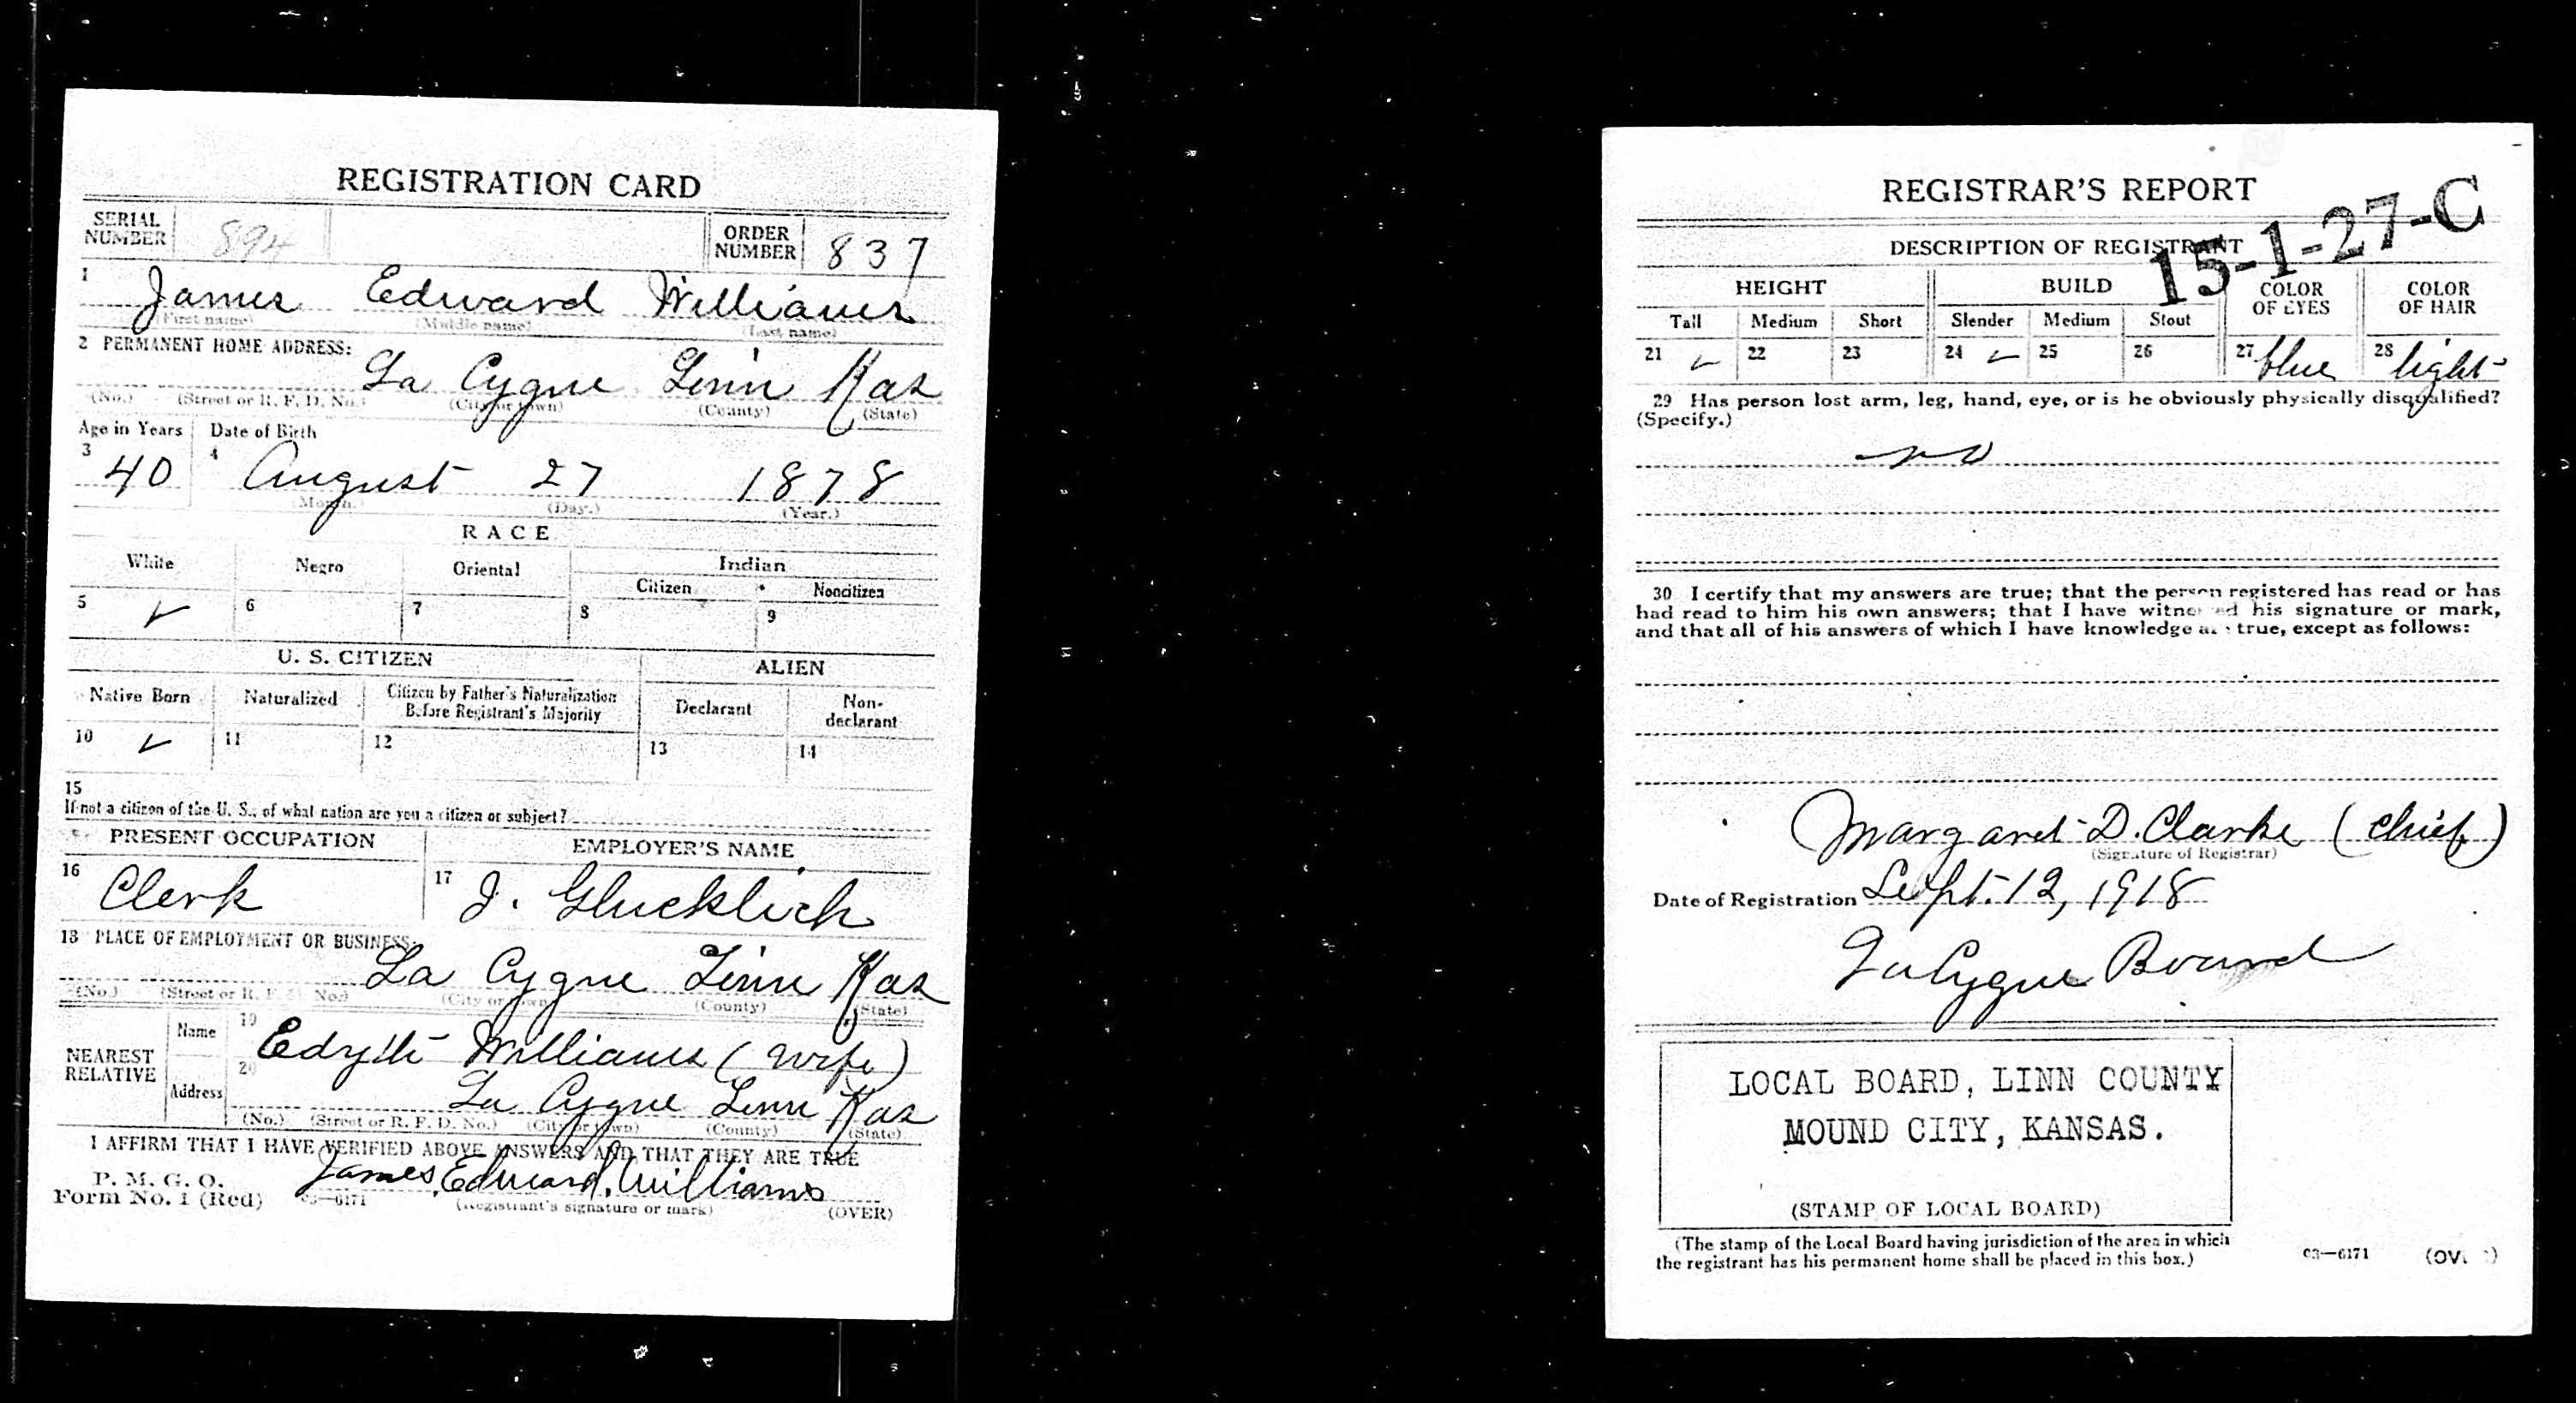 REGISTRATION CARD
SERIAL NUMBER 894 ORDER NUMBER 837
1 James Edward Williams
(First name) (Middle name) (Last name)
2 PERMANENT HOME ADDRESS:
La Cygne Linn Kas
(No.) (Street or R. F. D. No.) (City or town) (County) (State)
Age in Years Date of Birth
3 40 4 August 27 1878
(Month.) (Day.) (Year.)
RACE
White Negro Oriental Indian
Citizen Noncitizen
5 ✓ 6 7 8 9
U. S. CITIZEN ALIEN
Native Born Naturalized Citizen by Father's Naturalization Before Registrant's Majority Declarant Non-declarant
10 ✓ 11 12 13 14
15
If not a citizen of the U. S., of what nation are you a citizen or subject?
PRESENT OCCUPATION EMPLOYER'S NAME
16 Clerk 17 J. Glucklich
18 PLACE OF EMPLOYMENT OR BUSINESS:
La Cygne Linn Kas
(No.) (Street or R. F. D. No.) (City or town) (County) (State)
NEAREST RELATIVE
Name 19 Edyth Williams (wife)
Address 20 La Cygne Linn Kas
(No.) (Street or R. F. D. No.) (City or town) (County) (State)
I AFFIRM THAT I HAVE VERIFIED ABOVE ANSWERS AND THAT THEY ARE TRUE
P. M. G. O.
Form No. 1 (Red) 03—6171 James Edward Williams
(Registrant's signature or mark) (OVER)
REGISTRAR'S REPORT
15-1-27-C
DESCRIPTION OF REGISTRANT
HEIGHT BUILD COLOR OF EYES COLOR OF HAIR
Tall Medium Short Slender Medium Stout
21 ✓ 22 23 24 ✓ 25 26 27 blue 28 light
29 Has person lost arm, leg, hand, eye, or is he obviously physically disqualified?
(Specify.)
no
30 I certify that my answers are true; that the person registered has read or has
had read to him his own answers; that I have witnessed his signature or mark,
and that all of his answers of which I have knowledge are true, except as follows:
Margaret D. Clarke (Chief)
(Signature of Registrar)
Date of Registration Sept. 12, 1918
LaCygne Board
LOCAL BOARD, LINN COUNTY
MOUND CITY, KANSAS.
(STAMP OF LOCAL BOARD)
(The stamp of the Local Board having jurisdiction of the area in which
the registrant has his permanent home shall be placed in this box.)
03—6171 (OVER)